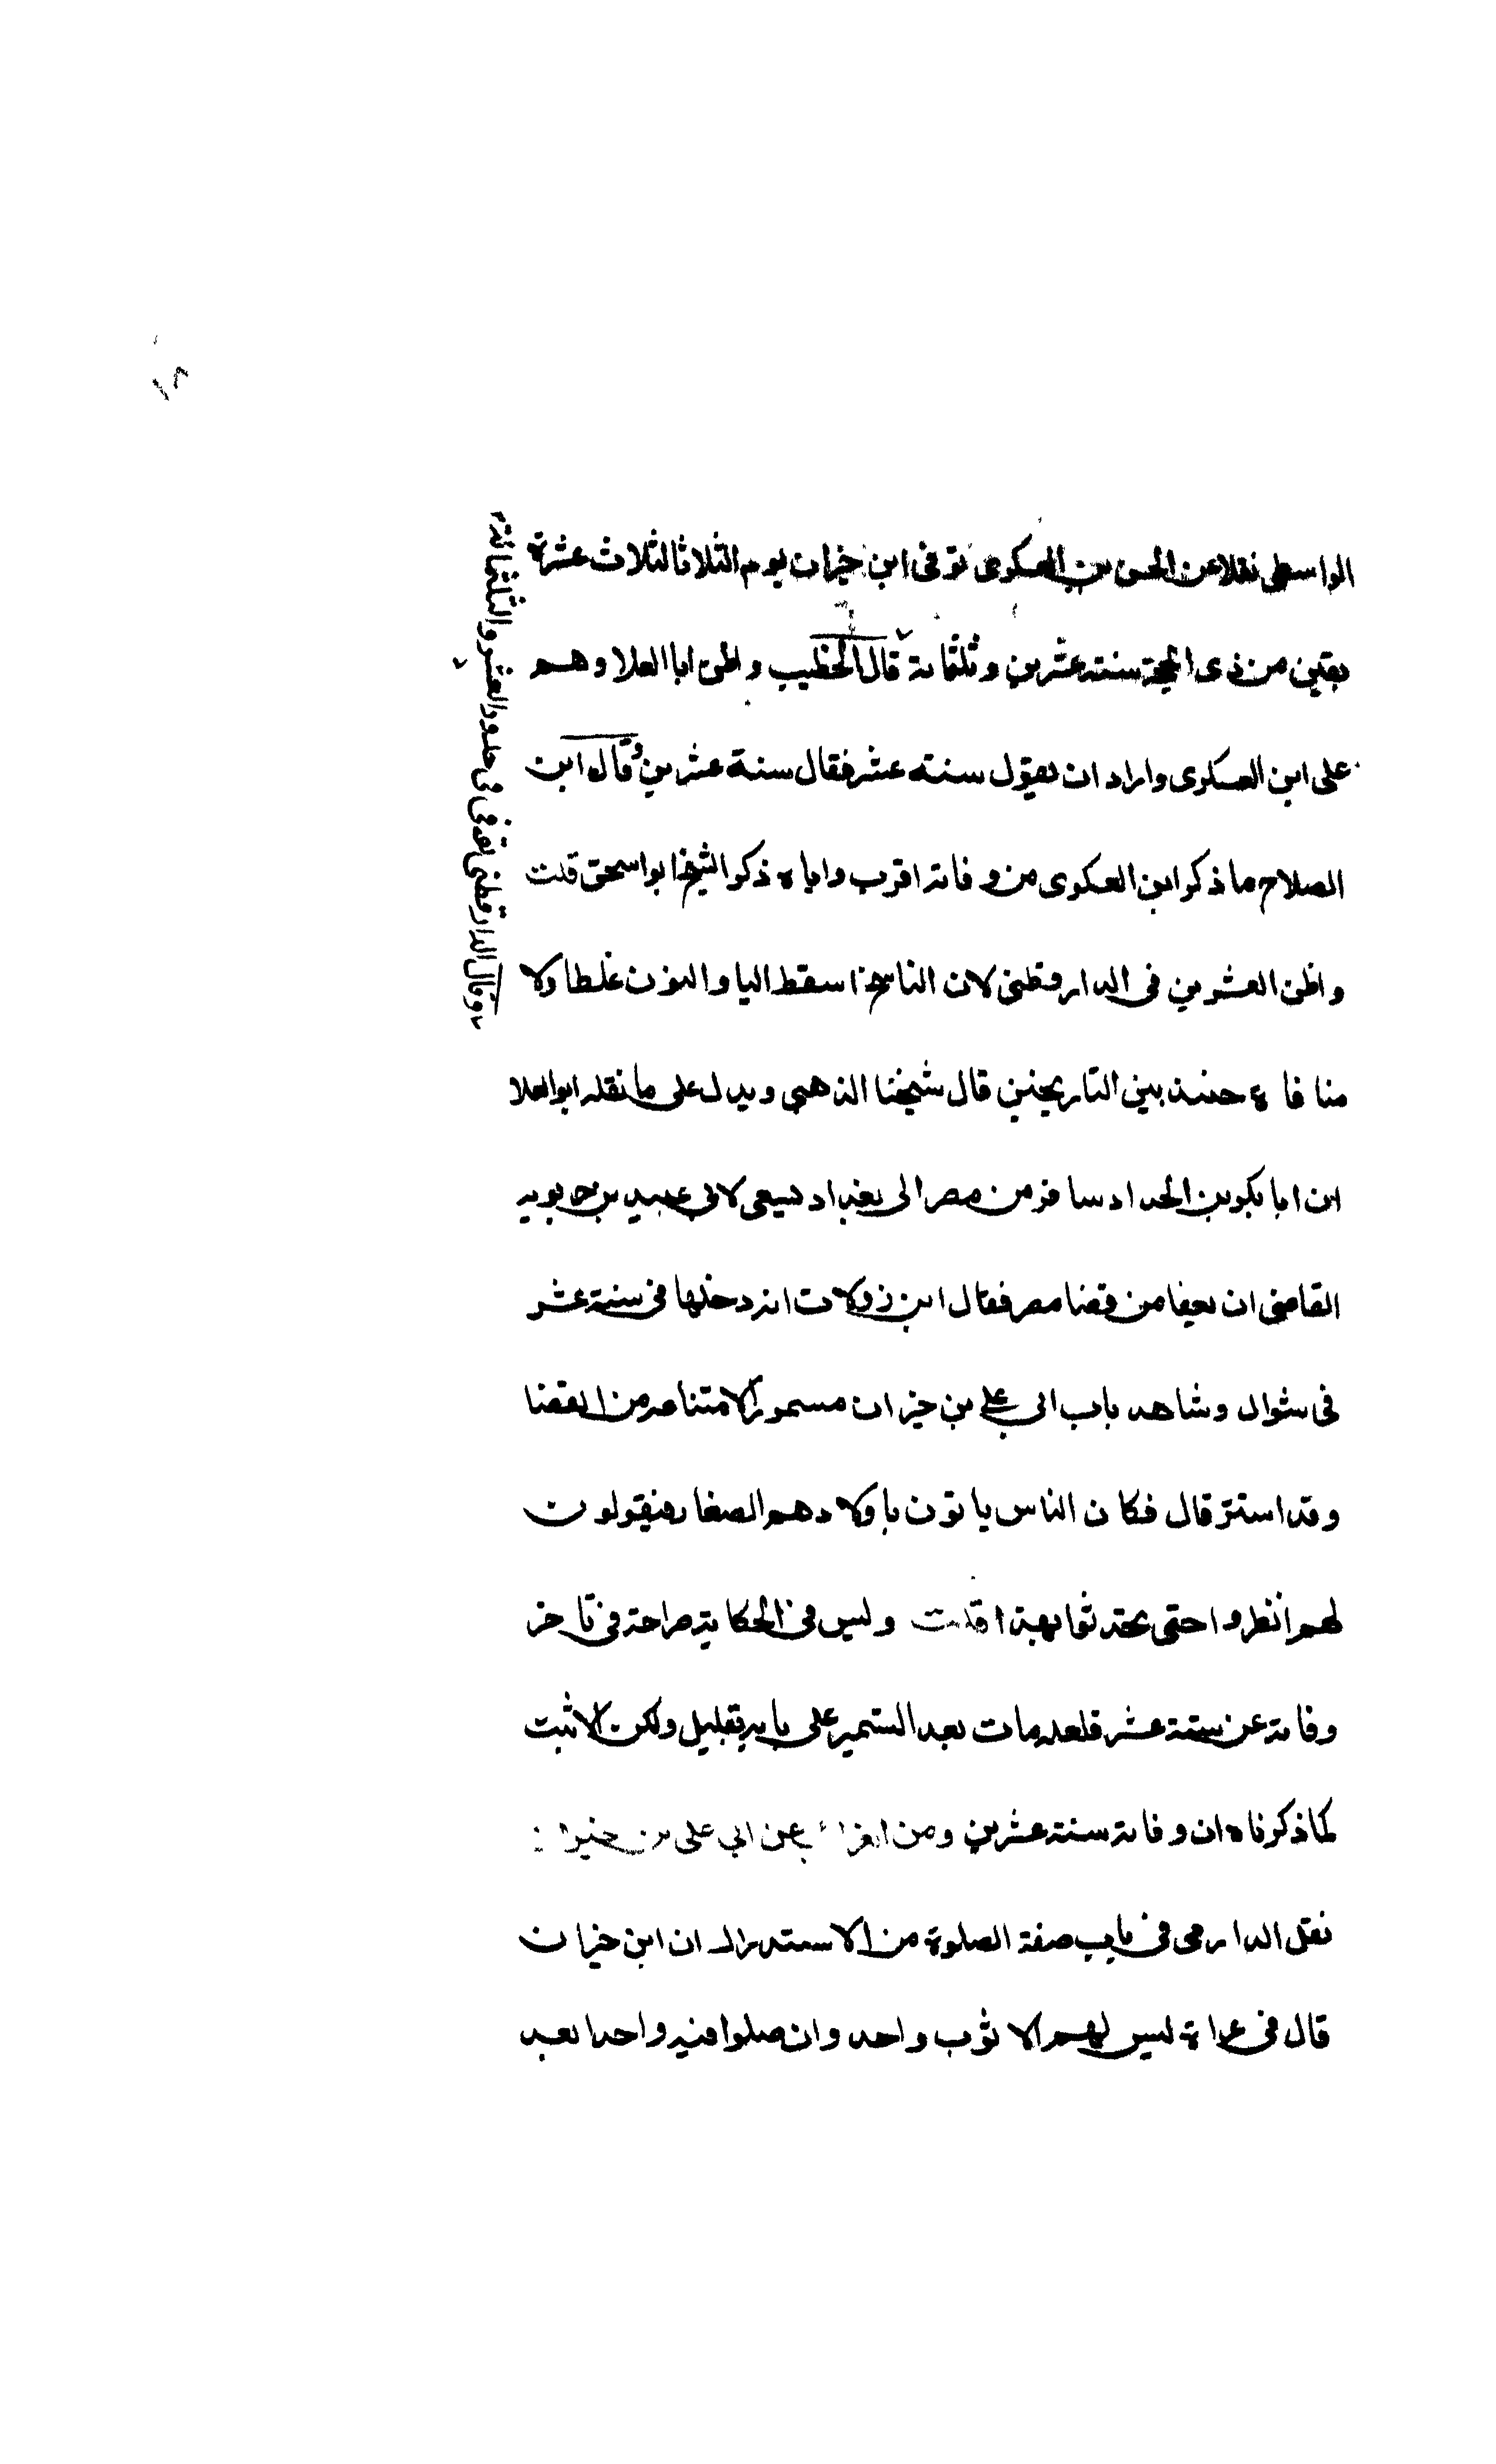 ١٨
الواسطى نقلا عن الحسن بن العسكرى توفى ابن خيران يوم الثلاثا لثلاث عشرة
بقين من ذى الحجة سنة عشرين وثلثمائة قال الخطيب واظن ابا العلا وهم
على ابن العسكرى واراد ان يقول سنة عشر فقال سنة عشرين وقال ابن
الصلاح ما ذكر ابن العسكرى من وفاته اقرب واياه ذكر الشيخ ابو اسحق قلت
واظن العشرين فى الدارقطنى لان الناسخ اسقط اليا والنون غلطا ولا
منافاة حينئذ بين التاريخين قال شيخنا الذهبى ويدل على ما نقله ابو العلا
ان ابا بكر بن الحداد سافر من مصر الى بغداد يسعى لابى عبيد بن حربويه
القاضى ان يعفا من قضا مصر فقال ابن زولاق انه دخلها فى سنة عشر
فى شوال وشاهد باب ابى على بن خيران مسمورا لامتناعه من القضا
وقد استتر قال فكان الناس ياتون باولادهم الصغار فيقولون
لهم انظروا حتى تحدثوا بهذا قلت وليس فى الحكاية صراحة فى تاخر
وفاته عن سنة عشر فلعله مات بعد التسمير على بابه بقليل ولكن الاثبت
كما ذكرناه ان وفاته سنة عشرين ومن الغرائب عن ابي على بن خيران
نقل الدارمى فى باب صفة الصلوة من الاستدراك ان ابن خيران
قال فى عراة ليس لهم الا ثوب واحد وان صلوا فيه واحدا بعد
وقال الدارقطنى توفى فى حدود العشر والثلثمائة